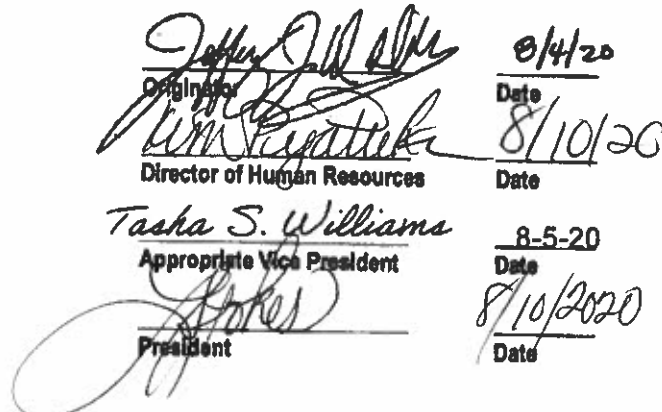 8/4/20
Originator Date
Kim 8/10/20
Director of Human Resources Date
Tasha S. Williams 8-5-20
Appropriate Vice President Date
8/10/2020
President Date